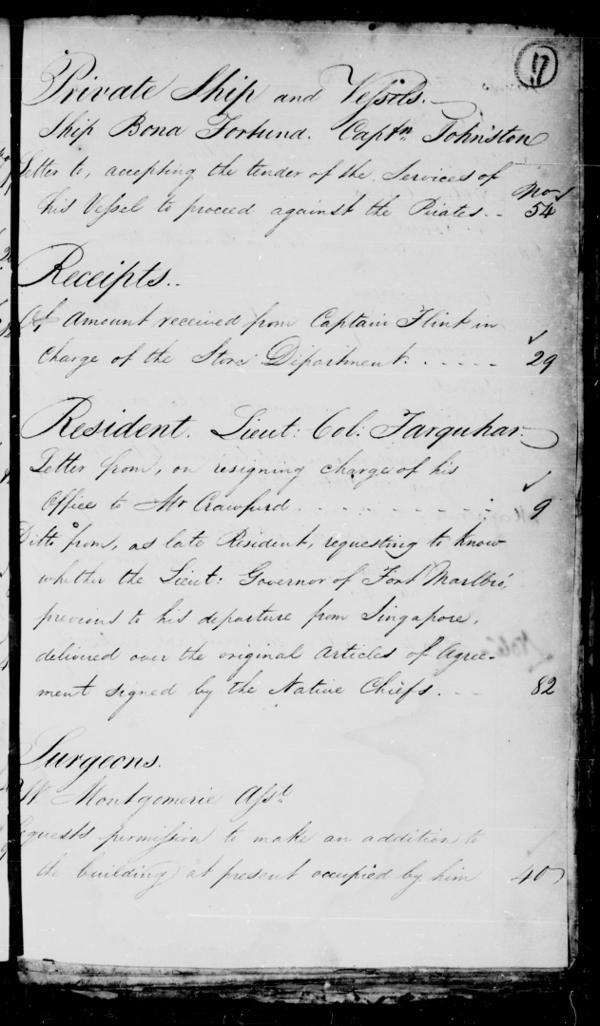 17
Private Ship and Vessels.
Ship Bona Fortund. Captn. Johnston
Letter to, accepting the tender of the Services of
his Vessel to proceed against the Pirates. - No 54
Receipts..
Of Amount received from Captain Flint in
Charge of the Store Department. . . . . . 29
Resident. Lieut: Col: Farquhar.
Letter from, on resigning charge of his
Office to Mr Crawfurd . . . . . . . . 9
Ditto from, as late Resident, requesting to know
whether the Lieut: Governor of Fort Marlbro',
previous to his departure from Singapore,
delivered over the original Articles of Agree-
ment signed by the Native Chiefs. - - 82
Surgeons.
W Montgomerie Asst.
Requests permission to make an addition to
the building at present occupied by him 40